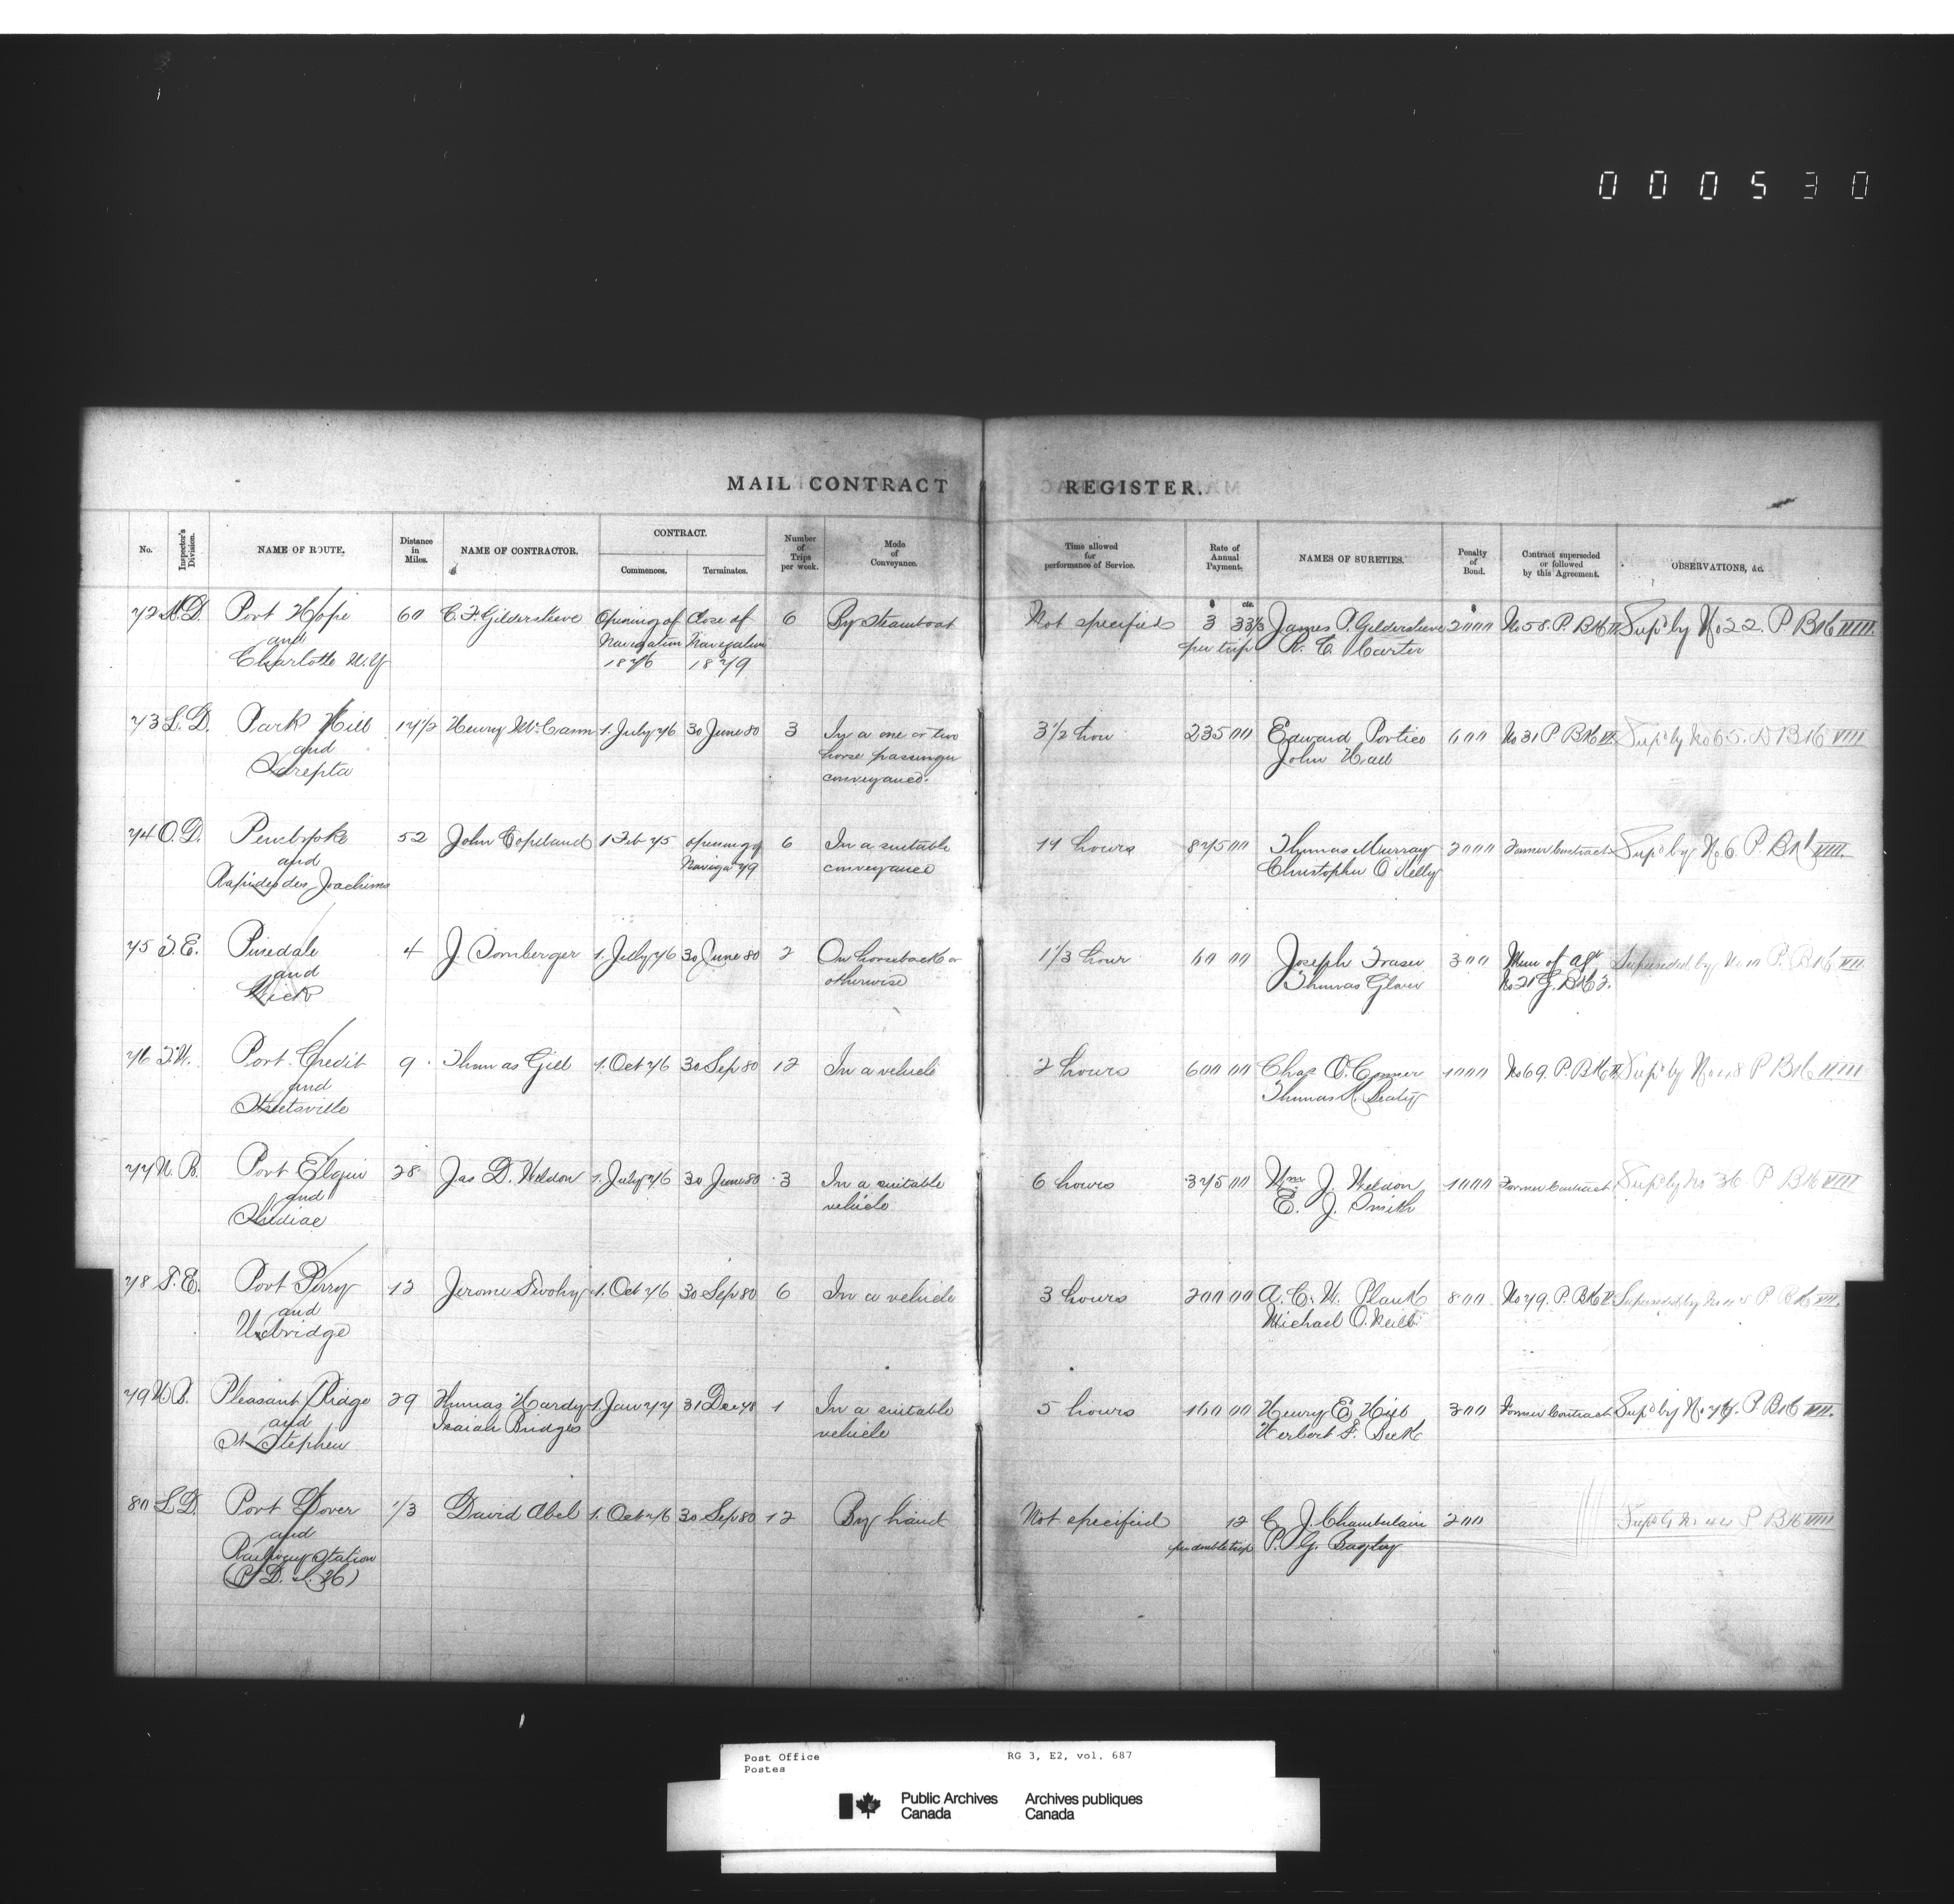 000530
MAIL CONTRACT REGISTER.
No. Inspector's Division. NAME OF ROUTE. Distance in Miles. NAME OF CONTRACTOR. CONTRACT. Commences. Terminates. Number of Trips per week. Mode of Conveyance. Time allowed for performance of Service. Rate of Annual Payment. NAMES OF SURETIES. Penalty of Bond. Contract superseded or followed by this Agreement. OBSERVATIONS, &c.
$ cts. $
72 Port Hope 60 C. F. Gildersleeve Opening of Close of 6 By steamboat Not specified 3 33⅓ James P. Gildersleeve 2000 No 58. P. Bk II Sup'd by No 22. P Bk VIII.
and Navigation Navigation per trip R. C. Carter
Charlotte N.Y 1876 1879
73 L. D. Park Hill 14½ Henry McCann 1. July 76 30 June 80 3 In a one or two 3½ hour 235 00 Edward Portice 600 No 31 P Bk VI. Sup'd by No 65. Bk VIII
and horse passenger John Hall
Sarepta conveyance.
74 O. D. Pembroke 52 John Copeland 1 Feb 75 opening of 6 In a suitable 14 hours 875 00 Thomas Murray 2000 Former Contract Sup'd by No 6. P. Bk VIII.
and Naviga 79 conveyance Christopher O'Kelly
Rapides des Joachims
75 T. E. Pinedale 4 J. Sornberger 1. July 76 30 June 80 2 On horseback or 1⅓ hour 60 00 Joseph Fraser 300 Mem of agt Superseded by No 10 P. Bk VII.
and otherwise Thomas Glover No 21 G. Bk 2.
Vick
76 T. W. Port Credit 9 Thomas Gill 1. Oct 76 30 Sep 80 12 In a vehicle 2 hours 600 00 Chas O. Conner 1000 No 69. P. Bk Sup'd by P Bk VIII
and Thomas
Streetsville
77 N. B. Port Elgin 28 Jas D. Weldon 1. July 76 30 June 80 3 In a suitable 6 hours 375 00 Wm J. Weldon 1000 Former Contract Sup'd by No 36 P Bk VIII
and vehicle E. J. Smith
Shediac
78 T. E. Port Perry 12 Jerome Swohy 1. Oct 76 30 Sep 80 6 In a vehicle 3 hours 200 00 A. C. W. Plank 800 No 79. P. Bk Superseded by P Bk VII.
and Michael O. Neill
Uxbridge
79 N. B. Pleasant Ridge 29 Thomas Hardy 1. Jan 77 31 Dec 78 1 In a suitable 5 hours 160 00 Henry E. Hill 300 Former Contract Sup'd by No 74. P Bk VII.
and Isaiah Bridges vehicle Herbert S. Beek
St Stephen
80 L D. Port Dover 1/3 David Abel 1. Oct 76 30 Sep 80 12 By hand Not specified 12 C. J. Chamberlain 200 P Bk VIII
and per double trip P. G. Bagley
Railway Station
(P. D. & L. H)
Post Office RG 3, E2, vol. 687
Postes
Public Archives Archives publiques
Canada Canada